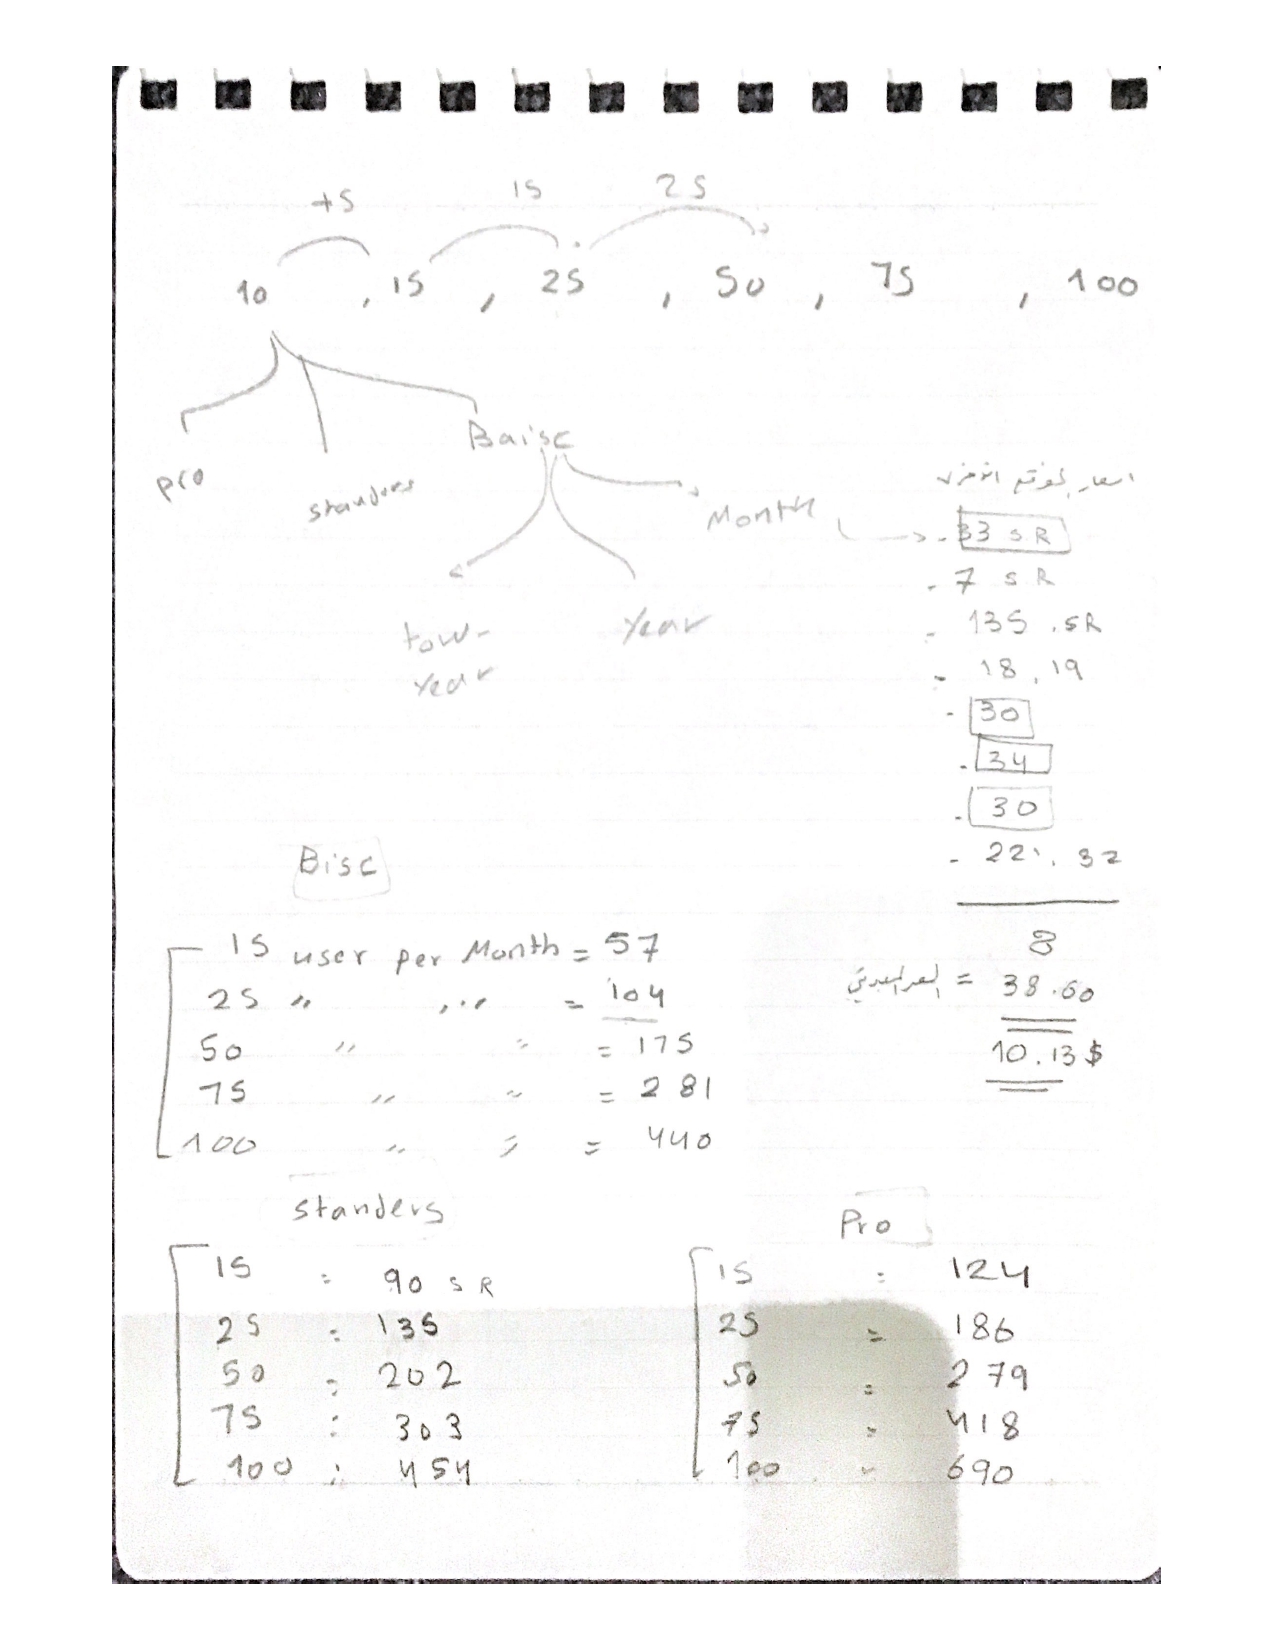 +5 15 25
10 , 15 , 25 , 50 , 75 , 100
Baisc
pro
standers
Month
tow-
year
Year
اسعار
- 33 SR
- 7 SR
- 135 .SR
- 18,19
- 30
- 34
- 30
- 221. 32
8
= 38.60
10.13$
Bisc
15 user per Month = 57
25 " " = 104
50 " " = 175
75 " " = 281
100 " " = 440
standers
15 : 90 SR
25 : 135
50 : 202
75 : 303
100 : 454
Pro
15 : 124
25 = 186
50 = 279
75 = 418
100 = 690